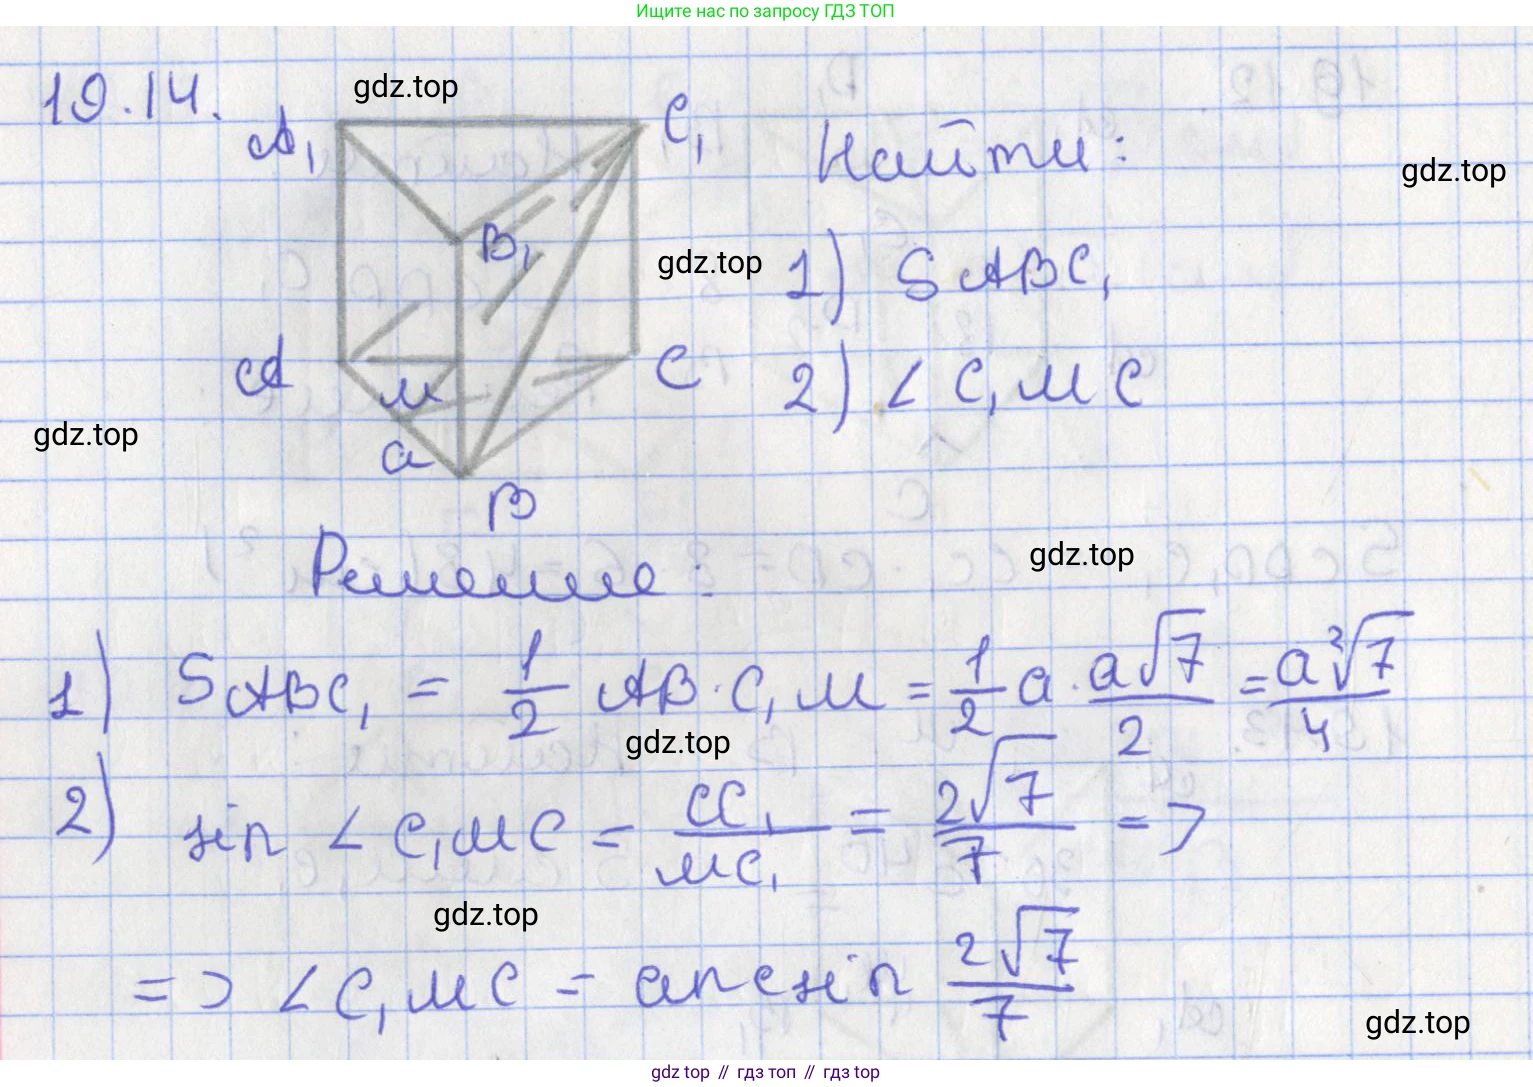 Ищите нас по запросу ГДЗ ТОП
19.14.
gdz.top
A₁
C₁
Найти:
gdz.top
B₁
gdz.top
1) S ABC₁
A
M
C
2) ∠ C₁MC
gdz.top
a
B
Решение:
gdz.top
1) S ABC₁ = 1/2 AB · C₁M = 1/2 a · a√7/2 = a²√7/4
gdz.top
2) sin ∠ C₁MC = CC₁/MC₁ = 2√7/7 =>
gdz.top
=> ∠ C₁MC = arcsin 2√7/7
gdz.top
gdz top // гдз топ // гдз top